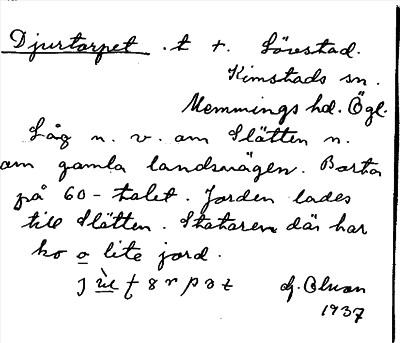 Djurtorpet . t +. Lövestad.
Kimstads sn.
Memmings hd. Ögl.
Låg n. v. om Slätten n.
om gamla landsvägen. Borta
på 60-talet. Jorden lades
till Slätten. Stataren där har
ko o lite jord.
dj. Olson
1937